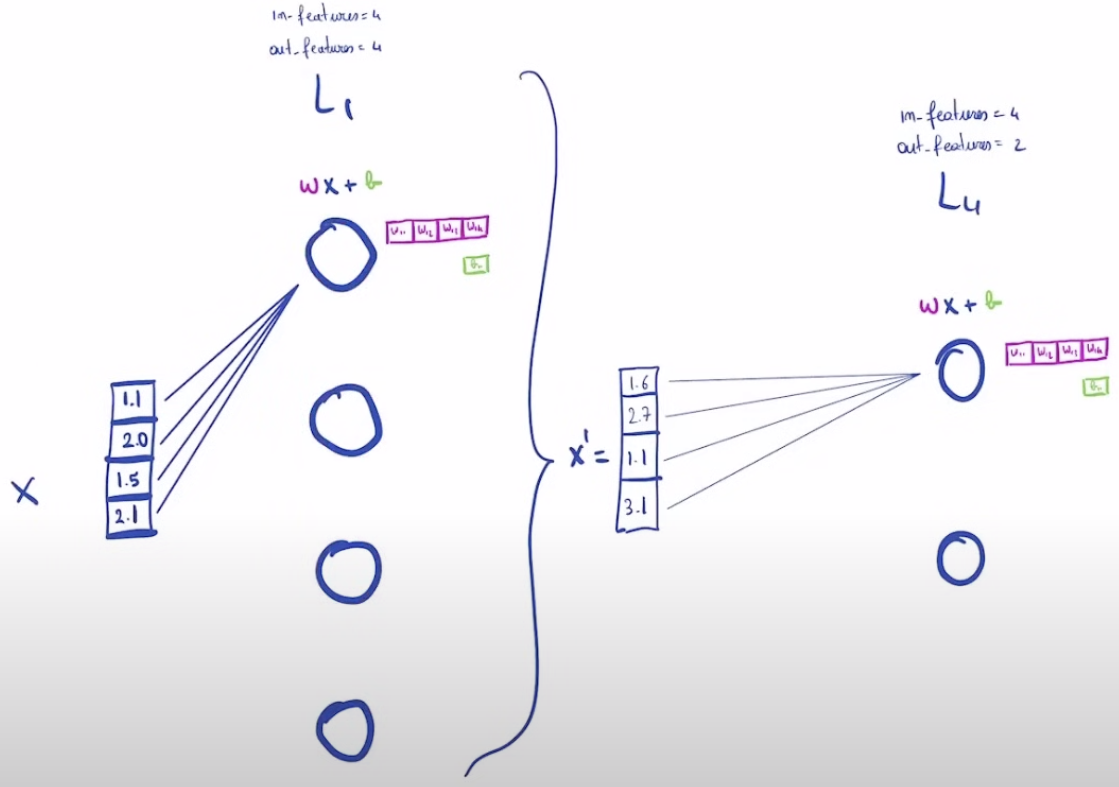 in-features=4
out-features=4
L1
wx+b
w11 w12 w13 w14
1.1
2.0
1.5
2.1
X
in-features=4
out-features=2
L4
wx+b
w11 w12 w13 w14
X'=
1.6
2.7
1.1
3.1